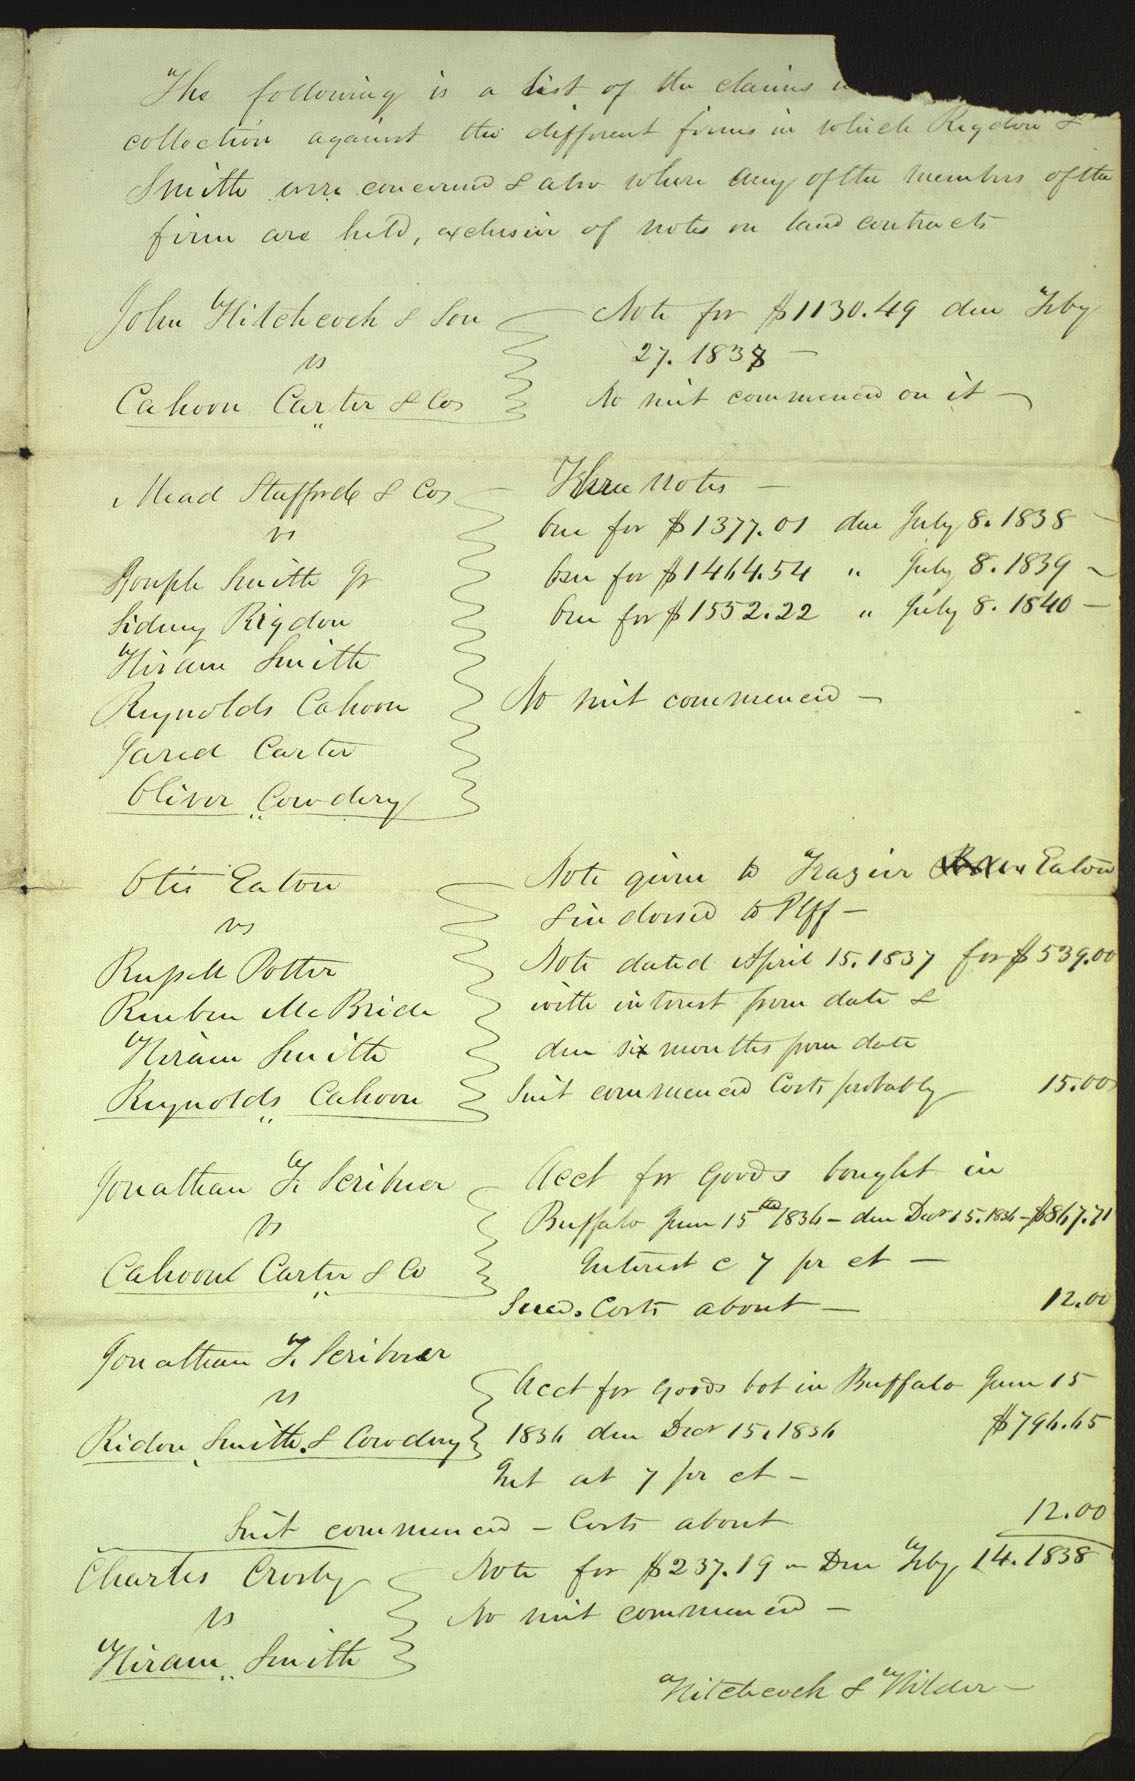 The following is a list of the claims
collection against the different firms in which Rigdon &
Smith were concerned & also where any of the members of the
firm are held, exclusive of notes on land contracts
John Hitchcock & Son
vs
Cahoon Carter & Co
Note for $1130.49 due Feby
27. 1838 —
No suit commenced on it —
Mead Stafford & Co
vs
Joseph Smith Jr
Sidney Rigdon
Hiram Smith
Reynolds Cahoon
Jared Carter
Oliver Cowdery
Three notes —
One for $1377.01 due July 8. 1838 —
One for $1464.54 " July 8. 1839 —
One for $1552.22 " July 8. 1840 —
No suit commenced —
Otis Eaton
vs
Russell Potter
Reuben McBride
Hiram Smith
Reynolds Cahoon
Note given to Frazier Eaton
& indorsed to Plff —
Note dated April 15. 1837 for $539.00
with interest from date &
due six months from date
Suit commenced Costs probably 15.00
Jonathan F. Scribner
vs
Cahoon Carter & Co
Acct for Goods bought in
Buffalo June 15th 1836 – due Decr 15. 1836 – $867.71
Interest @ 7 pr ct —
Sued. Costs about — 12.00
Jonathan F. Scribner
vs
Ridon Smith & Cowdery
Acct for goods bot in Buffalo June 15
1836 due Decr 15. 1836 $796.65
Int at 7 pr ct —
Suit commenced — Costs about 12.00
Charles Crosby
vs
Hiram Smith
Note for $237.19 – Due Feby 14. 1838
No suit commenced —
Hitchcock & Wilder —